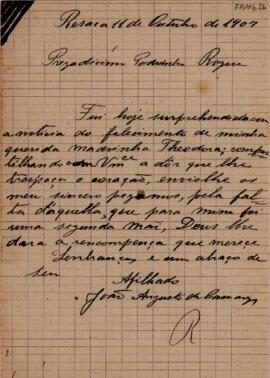 FAM6.26
Resaca 11 de Outubro de 1907
Prezadissimo Padrinho Roque
Fui hoje surprehendido com
a noticia do falecimento de minha
querida madrinha Theodora; compar
telhando com Vmcê a dôr que lhe
traspaça o coração, envio lhe os
meu sincero pezames, pela fal
ta daquella, que para mim foi
uma segunda mãi, Deus lhe
dara a rencompença que merece
Lembranças e um abraço de
seu
Afilhado
João Augusto de Camargo
R